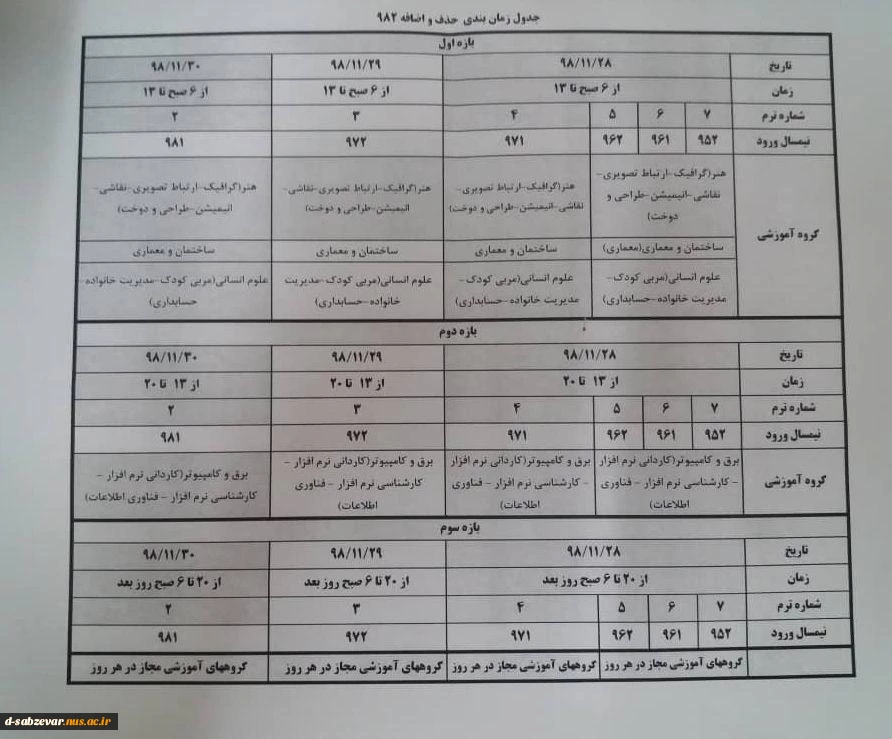 جدول زمان بندی حذف و اضافه ۹۸۲
بازه اول
تاریخ ۹۸/۱۱/۲۸ ۹۸/۱۱/۲۹ ۹۸/۱۱/۳۰
زمان از ۶ صبح تا ۱۳ از ۶ صبح تا ۱۳ از ۶ صبح تا ۱۳
شماره ترم ۷ ۶ ۵ ۴ ۳ ۲
نیمسال ورود ۹۵۲ ۹۶۱ ۹۶۲ ۹۷۱ ۹۷۲ ۹۸۱
گروه آموزشی
هنر(گرافیک-ارتباط تصویری-
نقاشی-انیمیشن-طراحی و
دوخت)
هنر(گرافیک-ارتباط تصویری-
نقاشی-انیمیشن-طراحی و دوخت)
هنر(گرافیک-ارتباط تصویری-نقاشی-
انیمیشن-طراحی و دوخت)
هنر(گرافیک-ارتباط تصویری-نقاشی-
انیمیشن-طراحی و دوخت)
ساختمان و معماری(معماری) ساختمان و معماری ساختمان و معماری ساختمان و معماری
علوم انسانی(مربی کودک-
مدیریت خانواده-حسابداری)
علوم انسانی(مربی کودک-
مدیریت خانواده-حسابداری)
علوم انسانی(مربی کودک-مدیریت
خانواده-حسابداری)
علوم انسانی(مربی کودک-مدیریت خانواده-
حسابداری)
بازه دوم
تاریخ ۹۸/۱۱/۲۸ ۹۸/۱۱/۲۹ ۹۸/۱۱/۳۰
زمان از ۱۳ تا ۲۰ از ۱۳ تا ۲۰ از ۱۳ تا ۲۰
شماره ترم ۷ ۶ ۵ ۴ ۳ ۲
نیمسال ورود ۹۵۲ ۹۶۱ ۹۶۲ ۹۷۱ ۹۷۲ ۹۸۱
گروه آموزشی
برق و کامپیوتر(کاردانی نرم افزار
- کارشناسی نرم افزار - فناوری
اطلاعات)
برق و کامپیوتر(کاردانی نرم افزار
- کارشناسی نرم افزار - فناوری
اطلاعات)
برق و کامپیوتر(کاردانی نرم افزار -
کارشناسی نرم افزار - فناوری
اطلاعات)
برق و کامپیوتر(کاردانی نرم افزار -
کارشناسی نرم افزار - فناوری اطلاعات)
بازه سوم
تاریخ ۹۸/۱۱/۲۸ ۹۸/۱۱/۲۹ ۹۸/۱۱/۳۰
زمان از ۲۰ تا ۶ صبح روز بعد از ۲۰ تا ۶ صبح روز بعد از ۲۰ تا ۶ صبح روز بعد
شماره ترم ۷ ۶ ۵ ۴ ۳ ۲
نیمسال ورود ۹۵۲ ۹۶۱ ۹۶۲ ۹۷۱ ۹۷۲ ۹۸۱
گروههای آموزشی مجاز در هر روز گروههای آموزشی مجاز در هر روز گروههای آموزشی مجاز در هر روز گروههای آموزشی مجاز در هر روز
d-sabzevar.nus.ac.ir